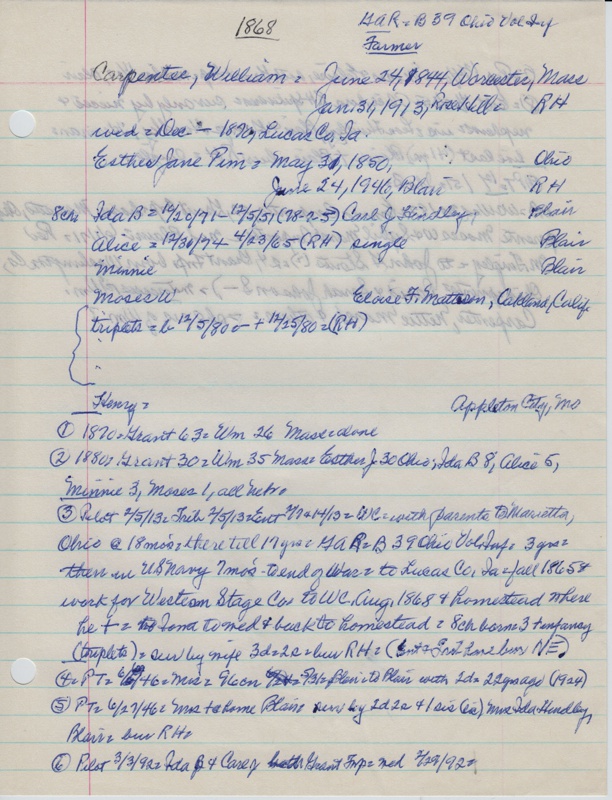 1868
GAR = B 39 Ohio Vol Inf
Farmer
Carpenter, William = June 24, 1844, Worcester, Mass
Jan. 31, 1913, RH
wed = Dec - 1870, Lucas Co, Ia
Esther Jane Pim = May 31, 1850, Ohio
June 24, 1946, Blair RH
8ch Ida B = 12/20/71 - 12/5/51 Carl J Hindley, Blair
Alice = 12/30/74 4/23/65 (RH) single Blair
Minnie Blair
Moses W Eloise F. Matteson, Oakland, Calif
triplets = b 12/5/80 - + 12/25/80 = (RH)
Henry = Appleton City, Mo
① 1870 = Grant 63 = Wm 26 Mass = alone
② 1880 = Grant 30 = Wm 35 Mass = Esther J 30 Ohio, Ida B 8, Alice 5,
Minnie 3, Moses 1, all Nebr
③ Pilot 2/5/13 = Trib 2/5/13 = Ent = WC = with parents to Marietta,
Ohio @ 18 mos = there till 17 yrs = GAR = B 39 Ohio Vol Inf = 3 yrs =
then in US Navy 7 mos - to end of War = to Lucas Co, Ia = fall 1865 &
work for Western Stage Co = to WC, Aug, 1868 & homestead where
he + = to Iowa to wed & back to homestead = 8ch born = 3 + infancy
(triplets) = surv by wife 3d = 2s = bur RH =
④ = PT = 46 = Mrs = 96 on to Blair with 2d = 22 yrs ago (1924)
⑤ PT = 6/27/46 = Mrs + home Blair = surv by 2d 2s & 1 sis (sic) Mrs Ida Hindley,
Blair = bur RH =
⑥ Pilot 3/3/92 = Ida B & Carl J Grant Twp = wed 2/29/92 =